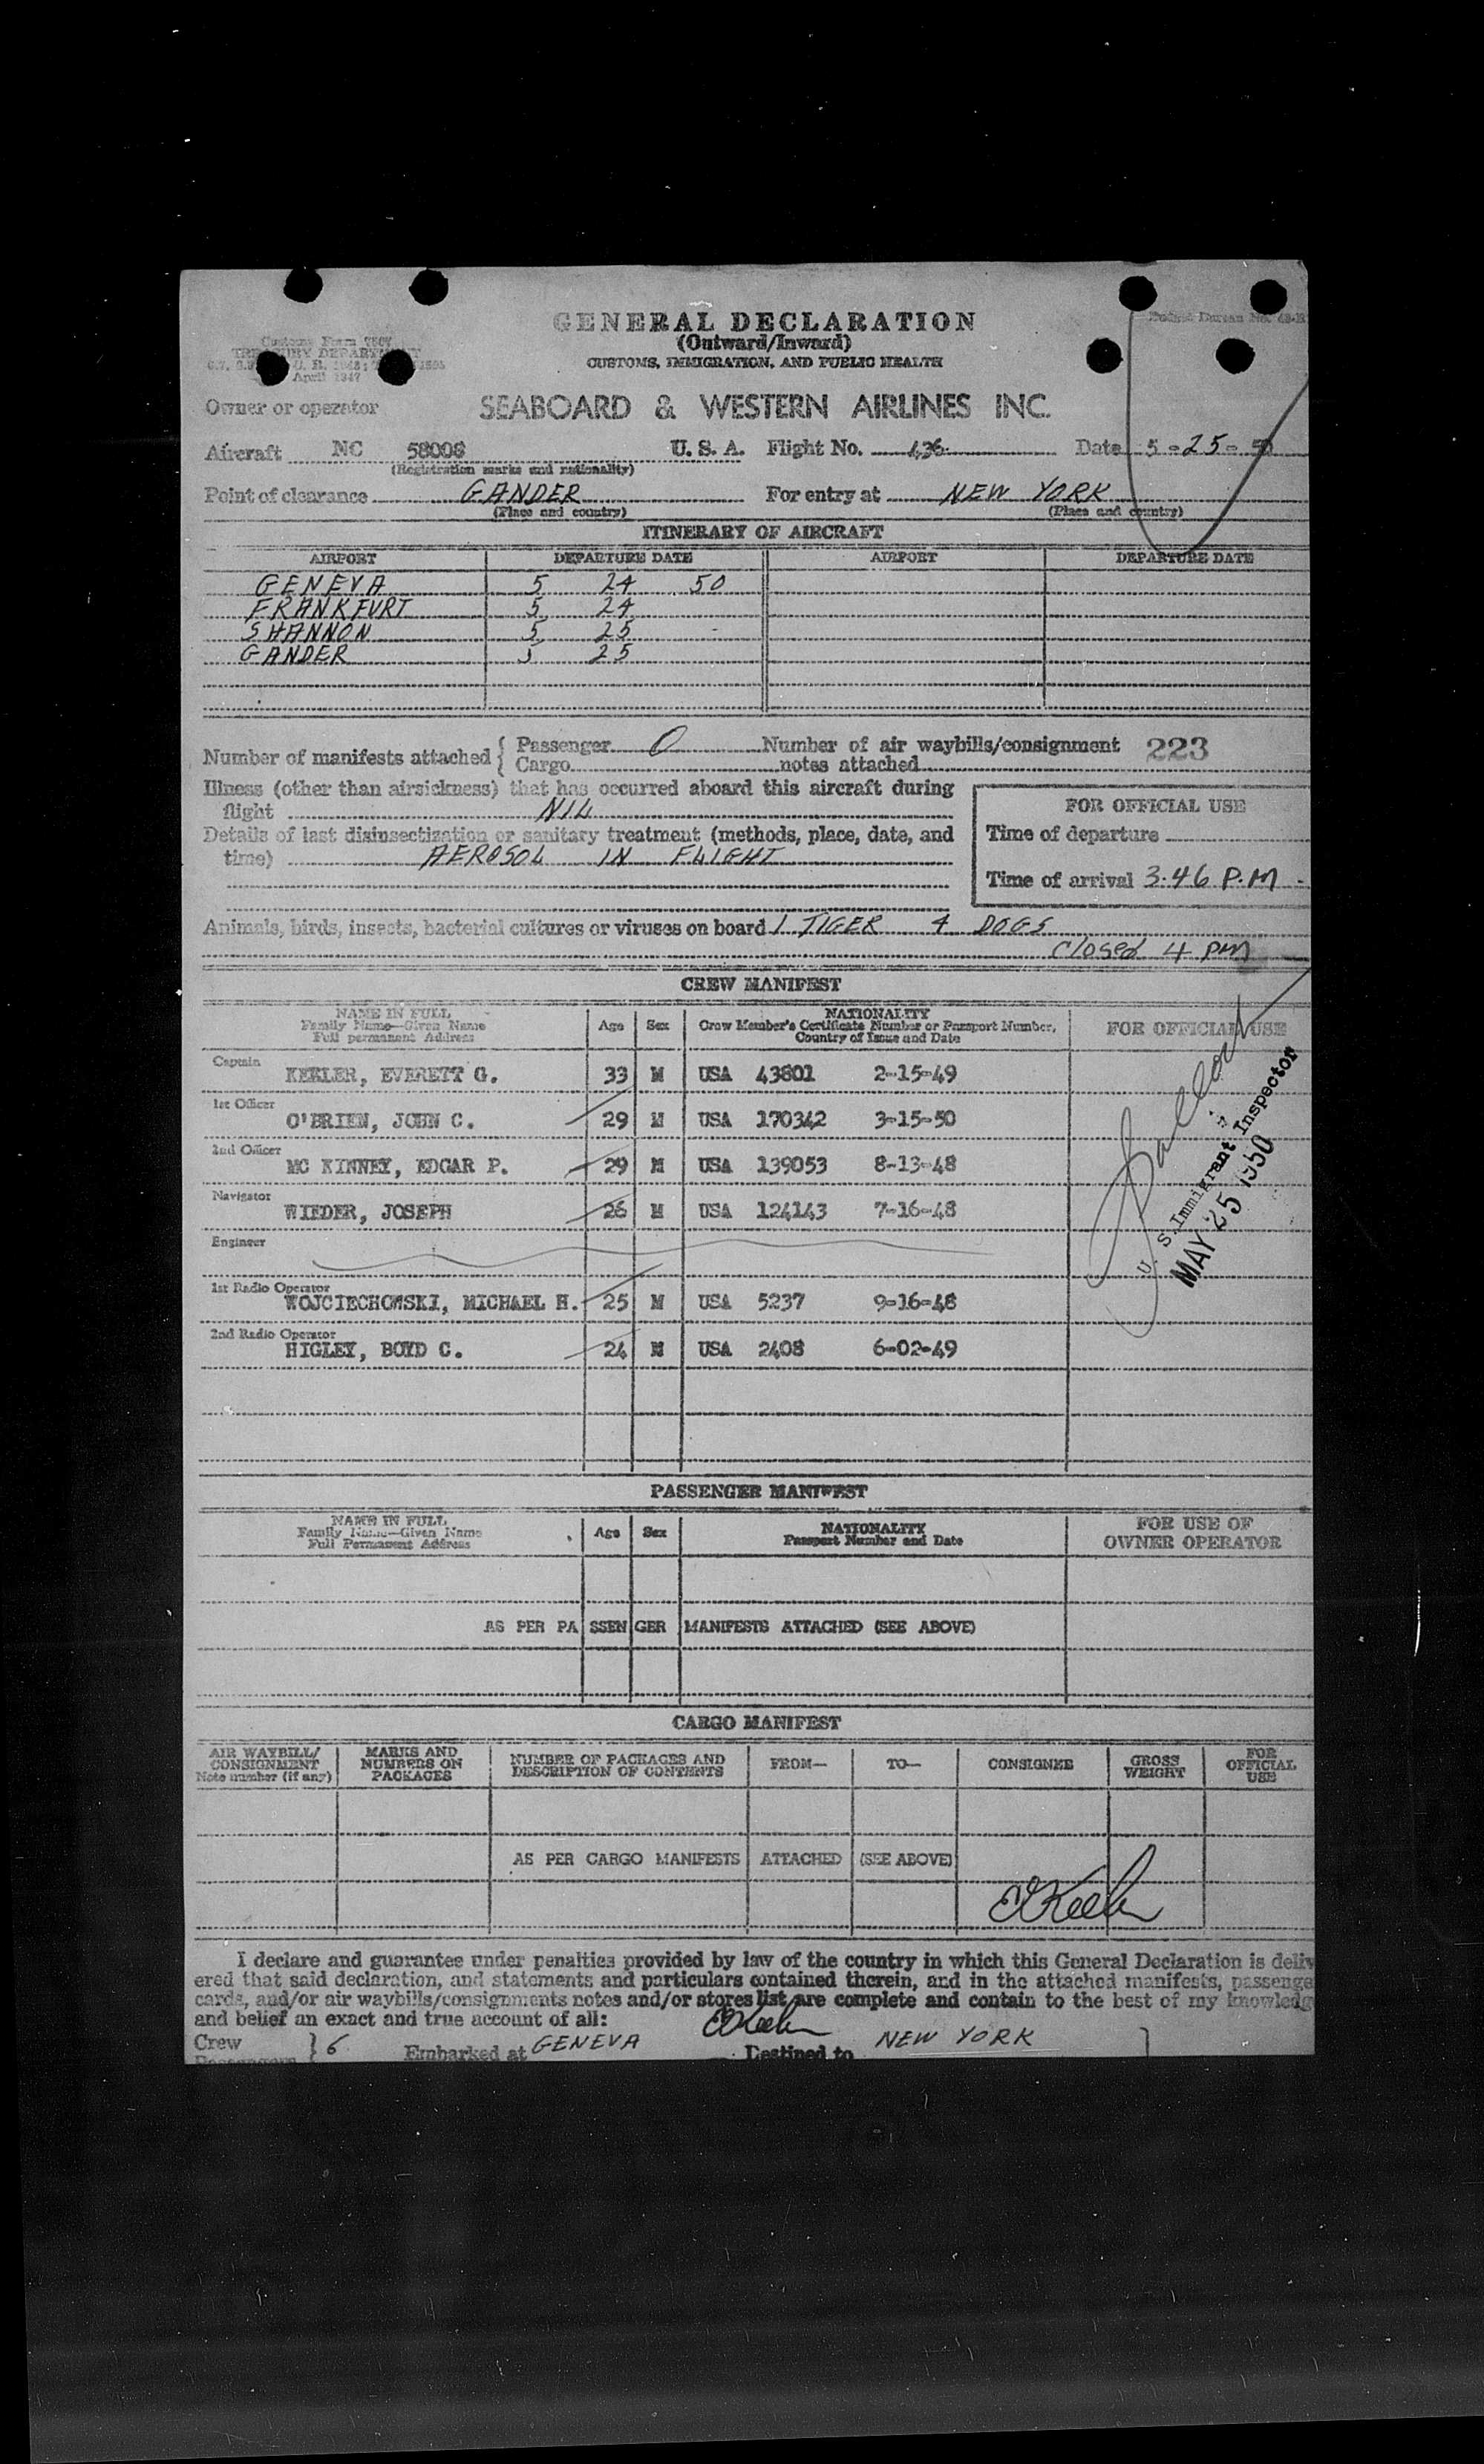 GENERAL DECLARATION
(Outward/Inward)
CUSTOMS, IMMIGRATION, AND PUBLIC HEALTH
Customs Form 7507
TREASURY DEPARTMENT
April 1947
Owner or operator SEABOARD & WESTERN AIRLINES INC.
Aircraft NC 58008 U. S. A. Flight No. 436 Date 5-25-50
(Registration marks and nationality)
Point of clearance GANDER For entry at NEW YORK
(Place and country) (Place and country)
ITINERARY OF AIRCRAFT
AIRPORT DEPARTURE DATE AIRPORT DEPARTURE DATE
GENEVA 5 24 50
FRANKFURT 5 24
SHANNON 5 25
GANDER 5 25
Number of manifests attached { Passenger 0 Number of air waybills/consignment 223
Cargo notes attached
Illness (other than airsickness) that has occurred aboard this aircraft during
flight NIL
FOR OFFICIAL USE
Details of last disinsectization or sanitary treatment (methods, place, date, and
time) AEROSOL IN FLIGHT
Time of departure
Time of arrival 3.46 P.M
Animals, birds, insects, bacterial cultures or viruses on board 1 TIGER 4 DOGS
closed 4 PM
CREW MANIFEST
NAME IN FULL
Family Name—Given Name
Full permanent Address
Age Sex
NATIONALITY
Crew Member's Certificate Number or Passport Number,
Country of Issue and Date
FOR OFFICIAL USE
Captain
KEELER, EVERETT G. 33 M USA 43801 2-15-49
1st Officer
O'BRIEN, JOHN C. 29 M USA 170342 3-15-50
2nd Officer
MC KINNEY, EDGAR P. 29 M USA 139053 8-13-48
Navigator
WIEDER, JOSEPH 26 M USA 124143 7-16-48
Engineer
1st Radio Operator
WOJCIECHOWSKI, MICHAEL H. 25 M USA 5237 9-16-48
2nd Radio Operator
HIGLEY, BOYD C. 24 M USA 2408 6-02-49
U. S. Immigrant Inspector
MAY 25 1950
PASSENGER MANIFEST
NAME IN FULL
Family Name—Given Name
Full Permanent Address
Age Sex
NATIONALITY
Passport Number and Date
FOR USE OF
OWNER OPERATOR
AS PER PASSENGER MANIFESTS ATTACHED (SEE ABOVE)
CARGO MANIFEST
AIR WAYBILL/
CONSIGNMENT
Note number (if any)
MARKS AND
NUMBERS ON
PACKAGES
NUMBER OF PACKAGES AND
DESCRIPTION OF CONTENTS
FROM—
TO—
CONSIGNEE
GROSS
WEIGHT
FOR
OFFICIAL
USE
AS PER CARGO MANIFESTS ATTACHED (SEE ABOVE)
I declare and guarantee under penalties provided by law of the country in which this General Declaration is deliv
ered that said declaration, and statements and particulars contained therein, and in the attached manifests, passenge
cards, and/or air waybills/consignments notes and/or stores list, are complete and contain to the best of my knowledg
and belief an exact and true account of all:
Crew } 6 Embarked at GENEVA Destined to NEW YORK }